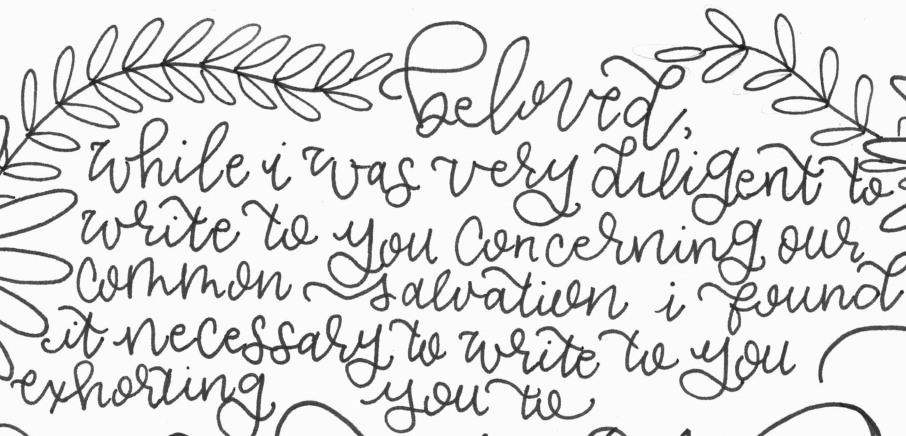 beloved,
while i was very diligent to
write to you concerning our
common salvation i found
it necessary to write to you
exhorting you to